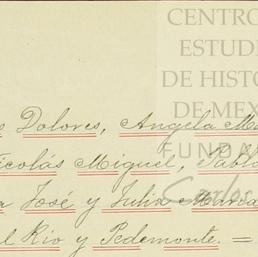 CENTRO
ESTUDI
DE HISTO
DE MEX
FUNDA
Carlos
s Dolores, Angela Ma
Nicolás Miguel, Pablo
a José y Julia María
el Rio y Pedemonte. =